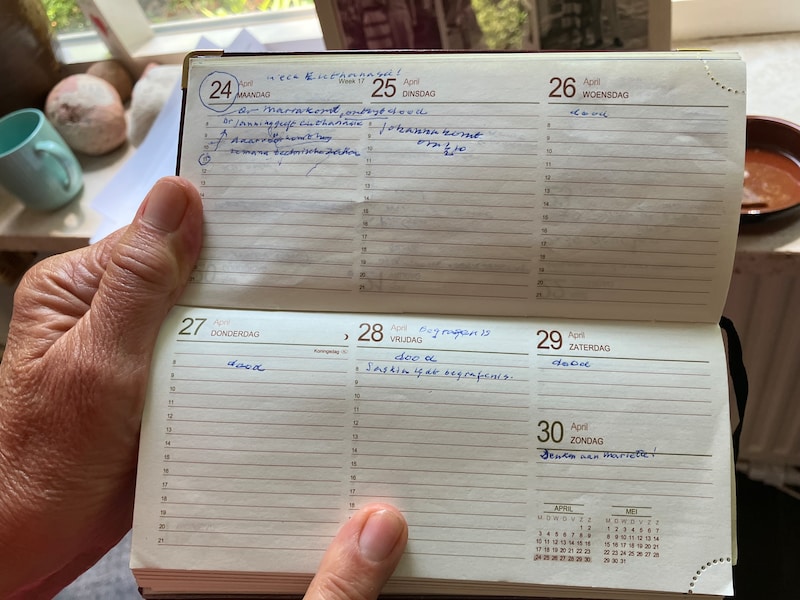 week Euthanasie!
Week 17
24 April
MAANDAG
Dr komt ontbijt dood
Dr geeft euthanasie
10
11
12
13
14
25 April
DINSDAG
Johanna komt
om 1/2 10
8
9
10
11
12
13
14
15
16
17
18
19
20
21
26 April
WOENSDAG
dood
8
9
10
11
12
13
14
15
16
17
18
19
20
21
27 April
DONDERDAG
Koningsdag
dood
8
9
10
11
12
13
14
15
16
17
18
19
20
21
28 April begrafenis
VRIJDAG
dood
Saskia begrafenis.
8
9
10
11
12
13
14
15
16
17
18
29 April
ZATERDAG
dood
30 April
ZONDAG
Denken aan Marietje!
APRIL
M D W D V Z Z
1 2
3 4 5 6 7 8 9
10 11 12 13 14 15 16
17 18 19 20 21 22 23
24 25 26 27 28 29 30
MEI
M D W D V Z Z
1 2 3 4 5 6 7
8 9 10 11 12 13 14
15 16 17 18 19 20 21
22 23 24 25 26 27 28
29 30 31